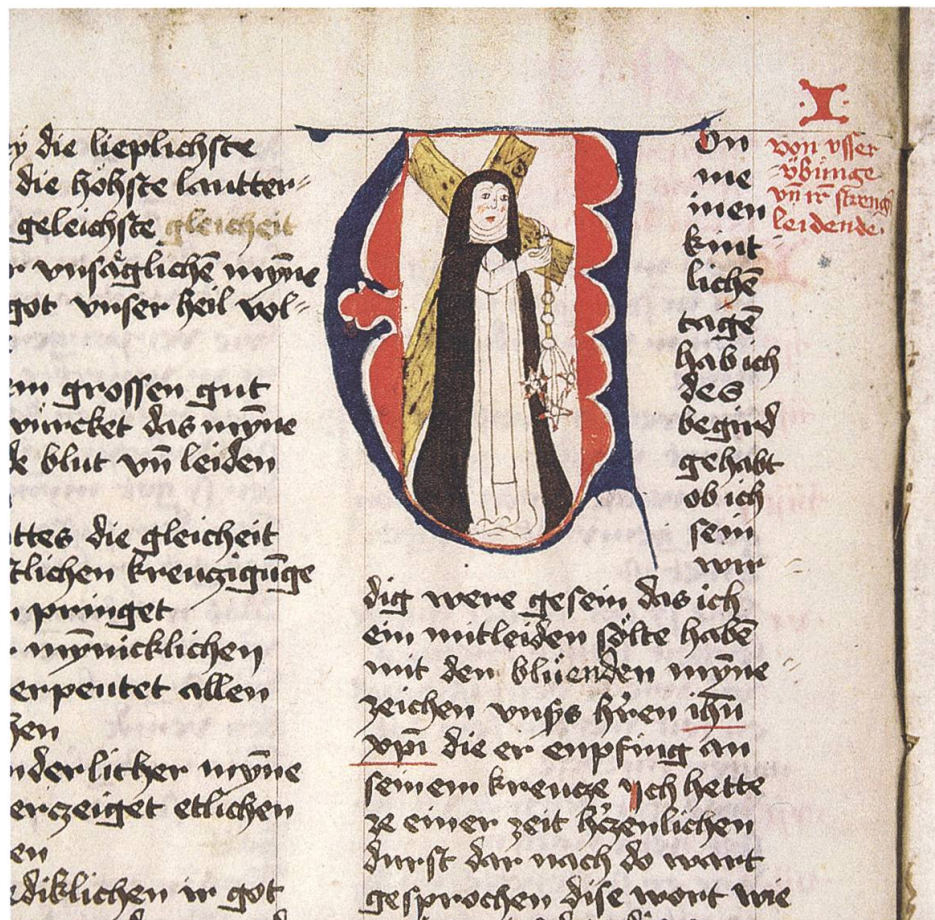 ẏ die lieplichste
die höhste lautter⸗
geleichste gleicheit
r vnsäglichē mẏn̄e
got vnser heil wol⸗
em grossen gut
würcket das mẏn̄e
de blut vn̄ leiden
ttes die gleicheit
tlichen kreuczigūge
n pringet
r mẏn̄icklichen
erpeutet allen
hen
nderlicher mẏn̄e
erzeiget etlichen
en
ediklichen ir got
I
von vsser
übunge
vn̄ ir streng
leidende.
On
me
inen
kint
lichē
tagē
hab ich
des
begird
gehabt
ob ich
sein
wir⸗
dig were gesein das ich
ein mitleiden sölte habē
mit den blüenden mẏn̄e
zeichen vnsʼs hʼren ih̄u
xp̄i die er enpfing an
seinem kreucze ich hette
ze einer zeit hʼczenlichen
durst dar nach do wart
gesprochen dise wort wie